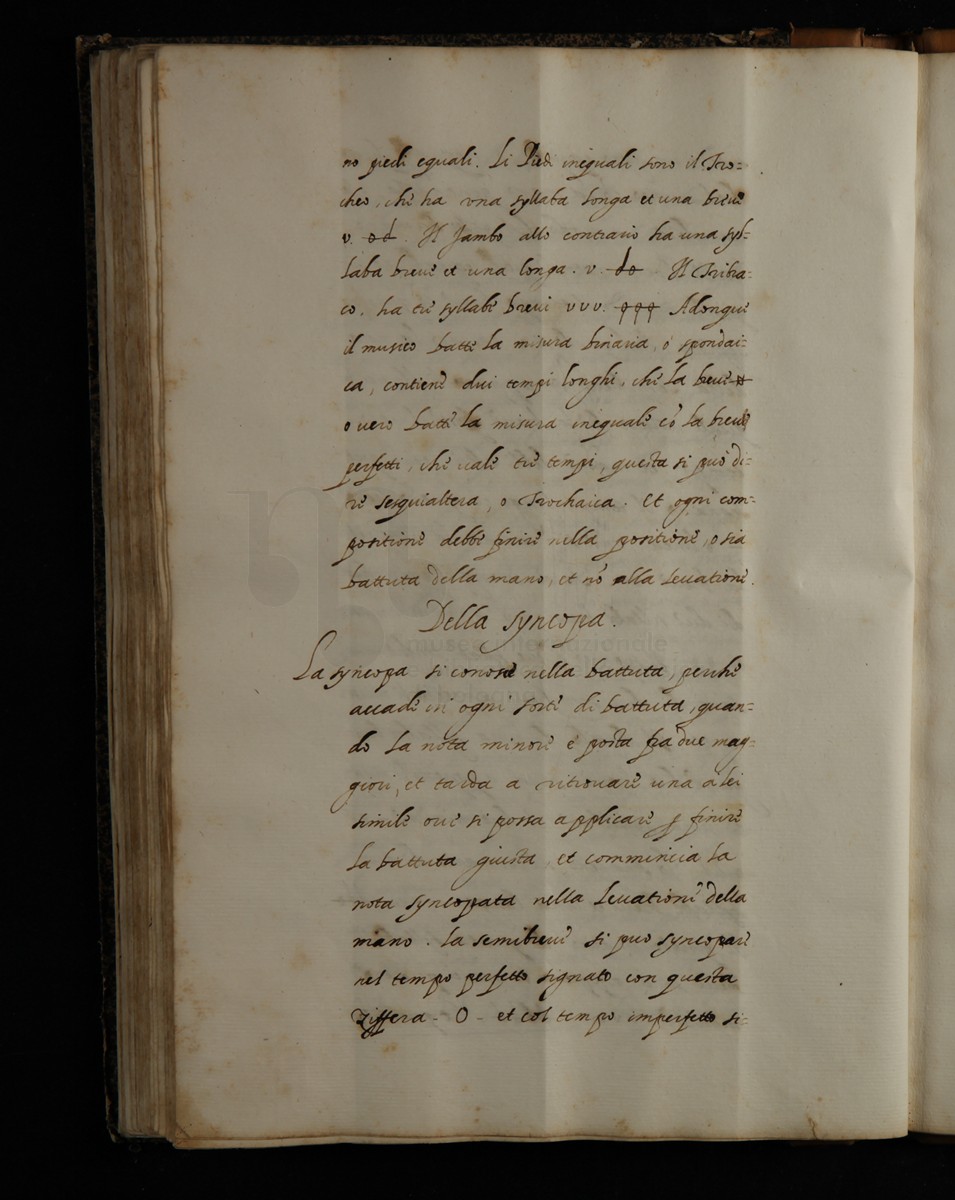 no piedi eguali. Li Piedi ineguali sono il Tro=
cheo, che ha una syllaba longa et una breve
Il Jambo allo contrario ha una syl=
laba breve et una longa. v. Il Tribra=
co, ha tre syllabe brevi v v v. Adonque
il musico batte la misura binaria, o spondai=
ca, contiene dui tempi longhi, che la breve
o uero batte la misura ineguale cō la breve
perfetti, che uale tre tempi, questa si può di=
re sesquialtera, o Trochaica. Et ogni com=
positione debbe finire nella positione, o sia
battuta della mano, et nō alla leuatione.
Della syncopa.
La syncopa si conosce nella battuta, perche
accade in ogni sorte di battuta, quan=
do la nota minore è posta fra due mag=
giori, et tarda a ritrouare una a lei
simile oue si possa applicare ꝑ finire
la battuta giusta, et commincia la
nota syncopata nella leuatione della
mano. la semibreve si puo syncopare
nel tempo perfetto signato con questa
Ziffera - O - et col tempo imperfetto si=
museo internazionale